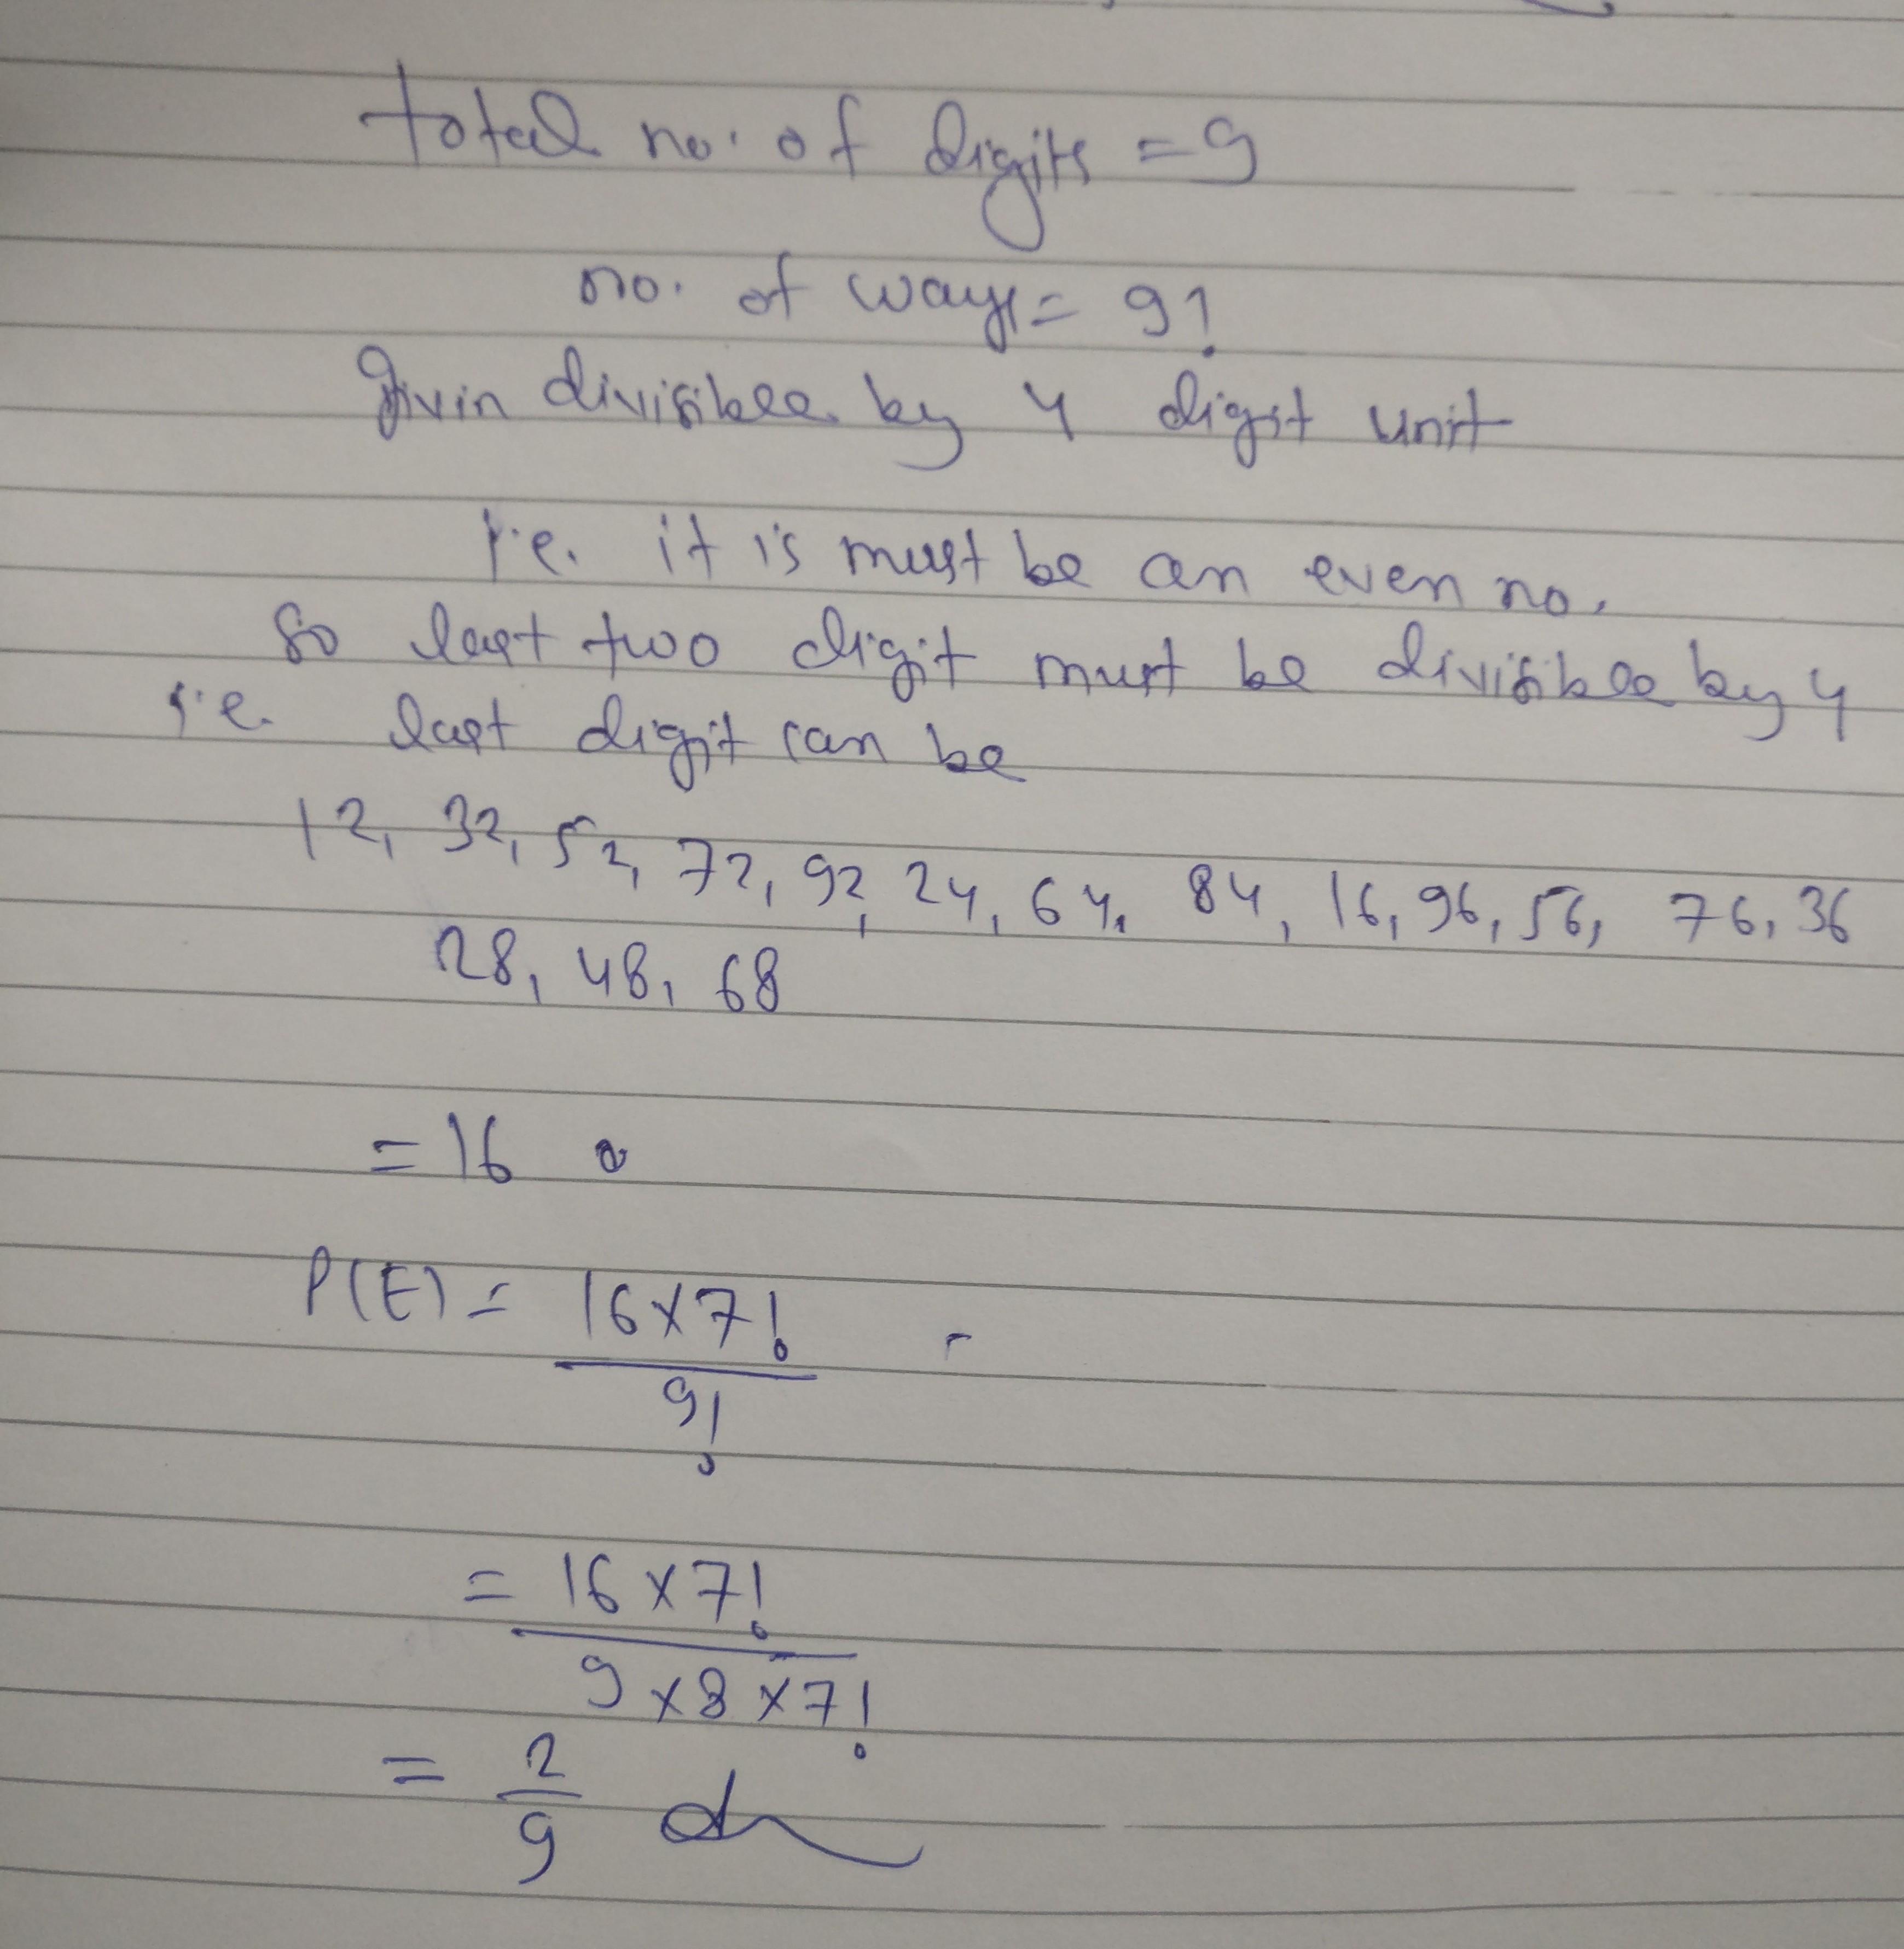 total no. of digits = 9
no. of ways = 9!
Givin divisible by 4 digit unit
i.e. it is must be an even no.
So last two digit must be divisible by 4
i.e. last digit can be
12, 32, 52, 72, 92, 24, 64, 84, 16, 96, 56, 76, 36
28, 48, 68
= 16
P(E) = 16×7!
9!
= 16×7!
9×8×7!
= 2
9